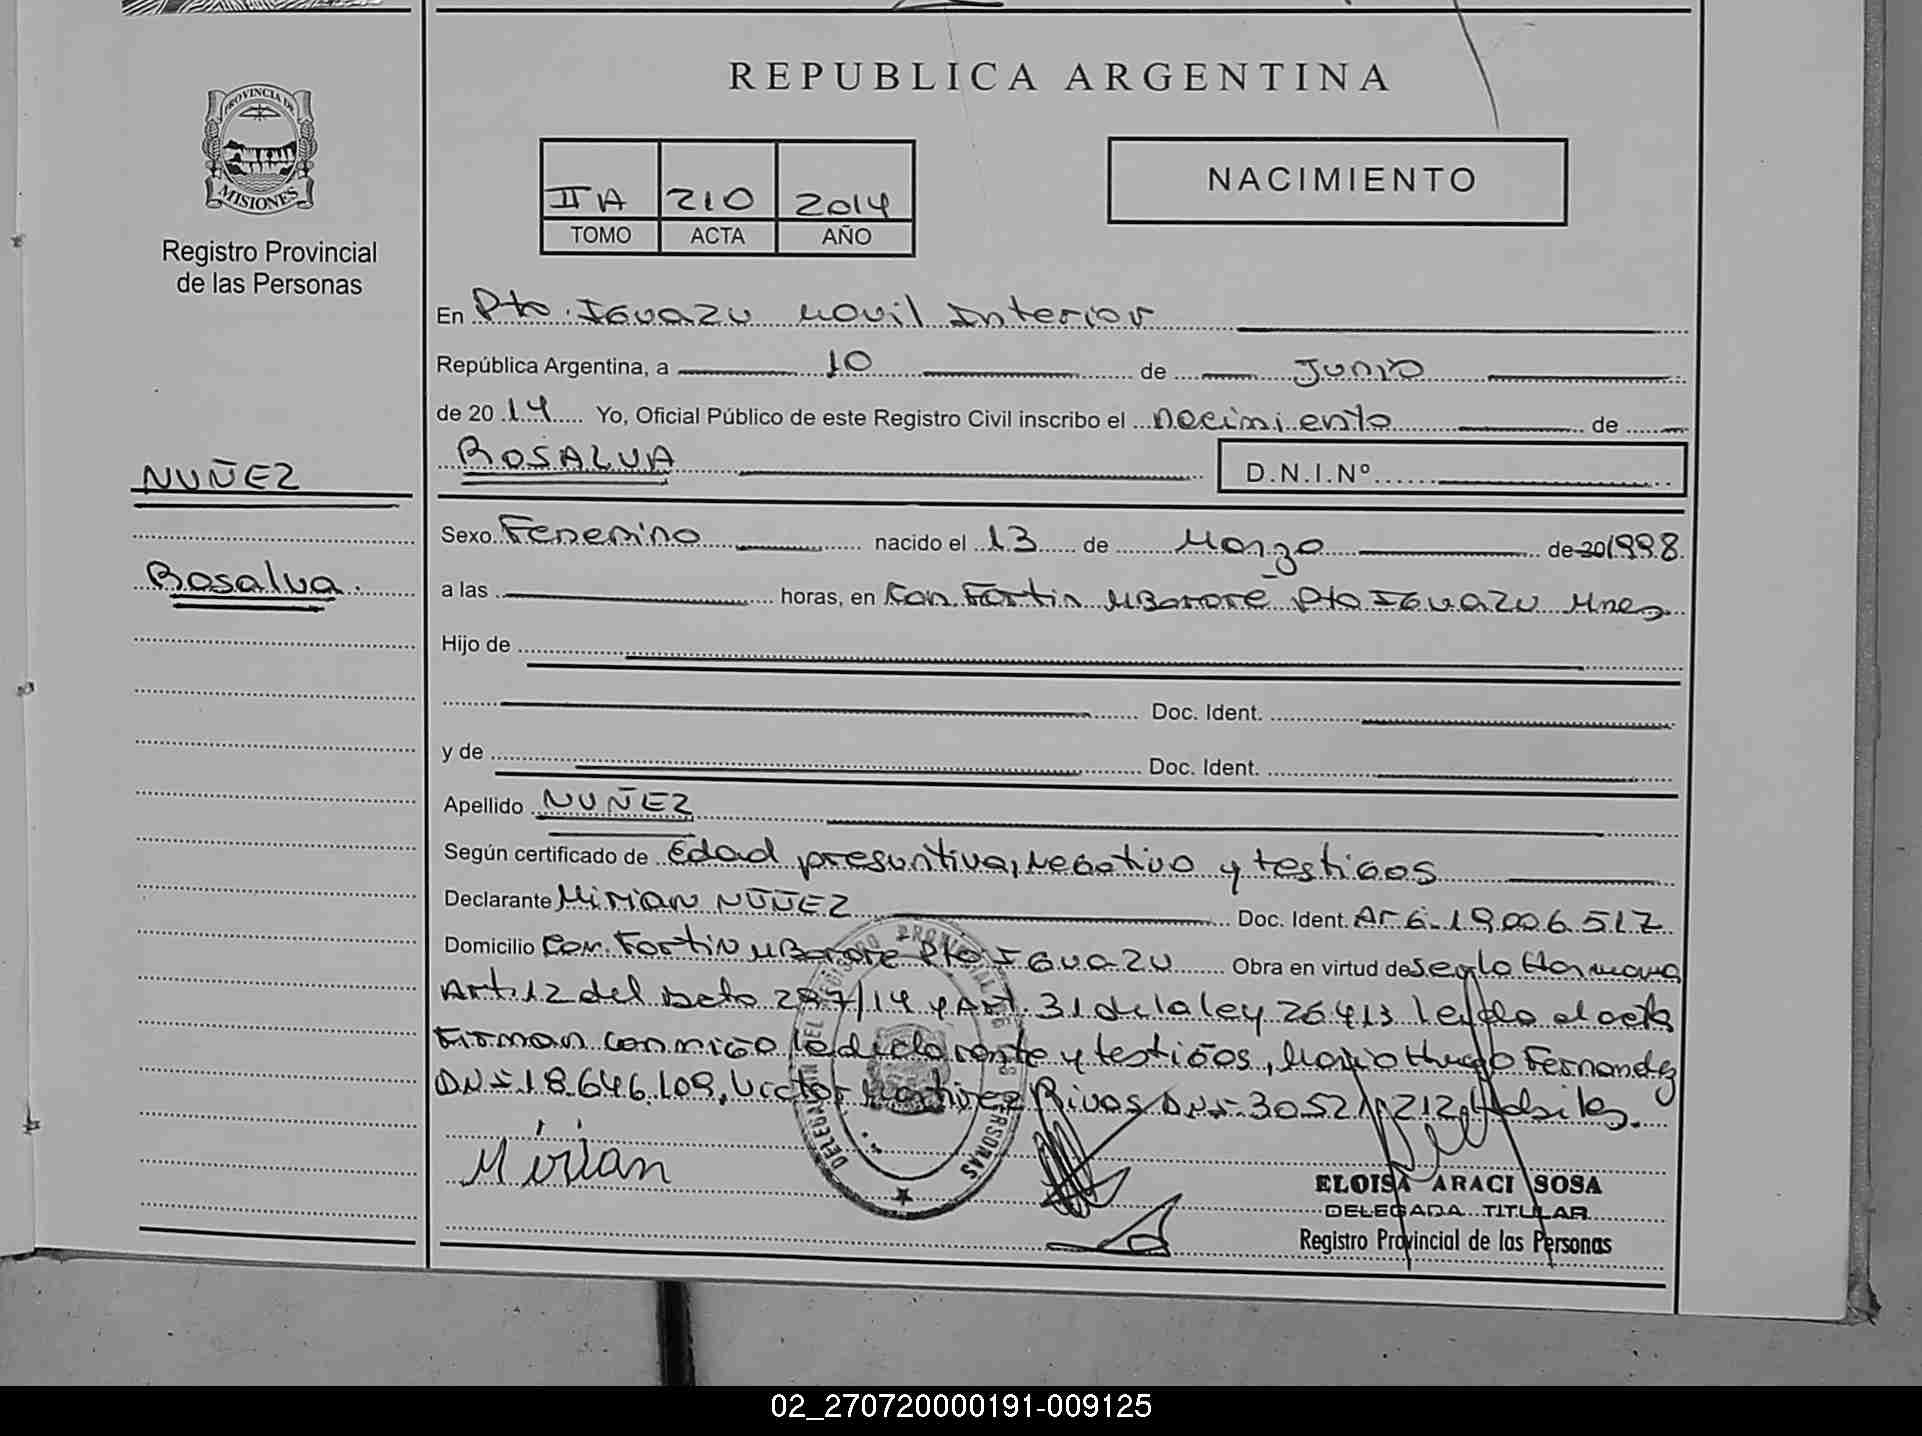 REPUBLICA ARGENTINA
PROVINCIA DE
MISIONES
Registro Provincial
de las Personas
NACIMIENTO
II A 210 2014
TOMO ACTA AÑO
En Pto. Iguazu Movil Interior
República Argentina, a 10 de Junio
de 2014 Yo, Oficial Público de este Registro Civil inscribo el nacimiento de
ROSALVA D.N.I.Nº
NUÑEZ
Rosalva.
Sexo Femenino nacido el 13 de Marzo de 20 1998.
a las horas, en Com Fortin MBororé Pto Iguazu Mnes
Hijo de
Doc. Ident.
y de Doc. Ident.
Apellido NUÑEZ
Según certificado de Edad presuntiva, Negativo y testigos
Declarante Mirian NUÑEZ Doc. Ident. Arg. 19.006.517
Domicilio Com. Fortin MBororé Pto Iguazu Obra en virtud de ser la Hermana
Art. 12 del Dcto 297/14 y Art. 31 de la ley 26413 leida el acta
Firman conmigo la declarante y testigos, Mario Hugo Fernandez
DNI 18.646.109, Victor Martinez Rivas DNI 3052 212, Habiles.
Mirian
DELEGACION DEL REGISTRO PROVINCIAL DE LAS PERSONAS
ELOISA ARACI SOSA
DELEGADA TITULAR
Registro Provincial de las Personas
02_270720000191-009125